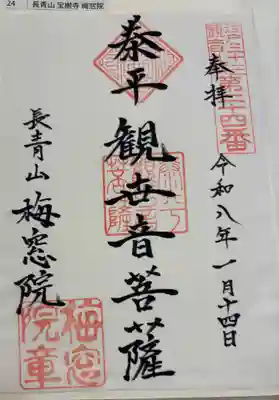 24 長青山 宝樹寺 梅窓院
江戸三十三観音第二十四番
奉拝
令和八年一月十四日
泰平観世音菩薩
長青山 梅窓院
梅窓院章